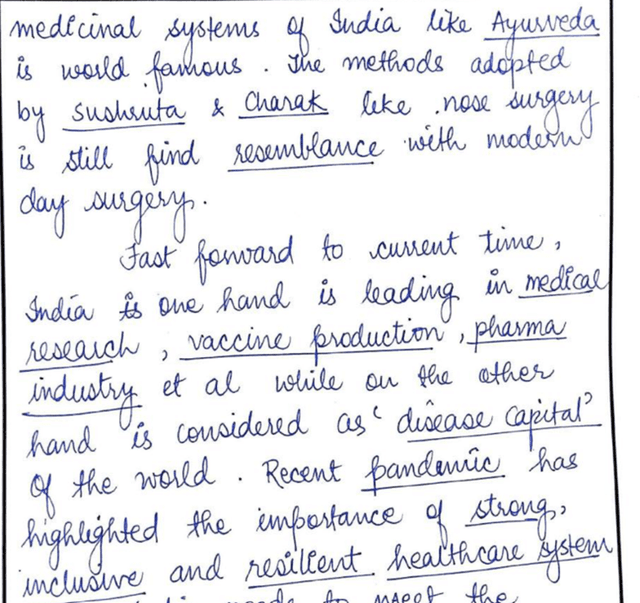 medicinal systems of India like Ayurveda
is world famous. The methods adopted
by Sushruta & Charak like nose surgery
is still find resemblance with modern
day surgery.
Fast forward to current time,
India is one hand is leading in medical
research, vaccine production, pharma
industry et al while on the other
hand is considered as 'disease capital'
of the world. Recent pandemic has
highlighted the importance of strong,
inclusive and resilient healthcare system
to meet the